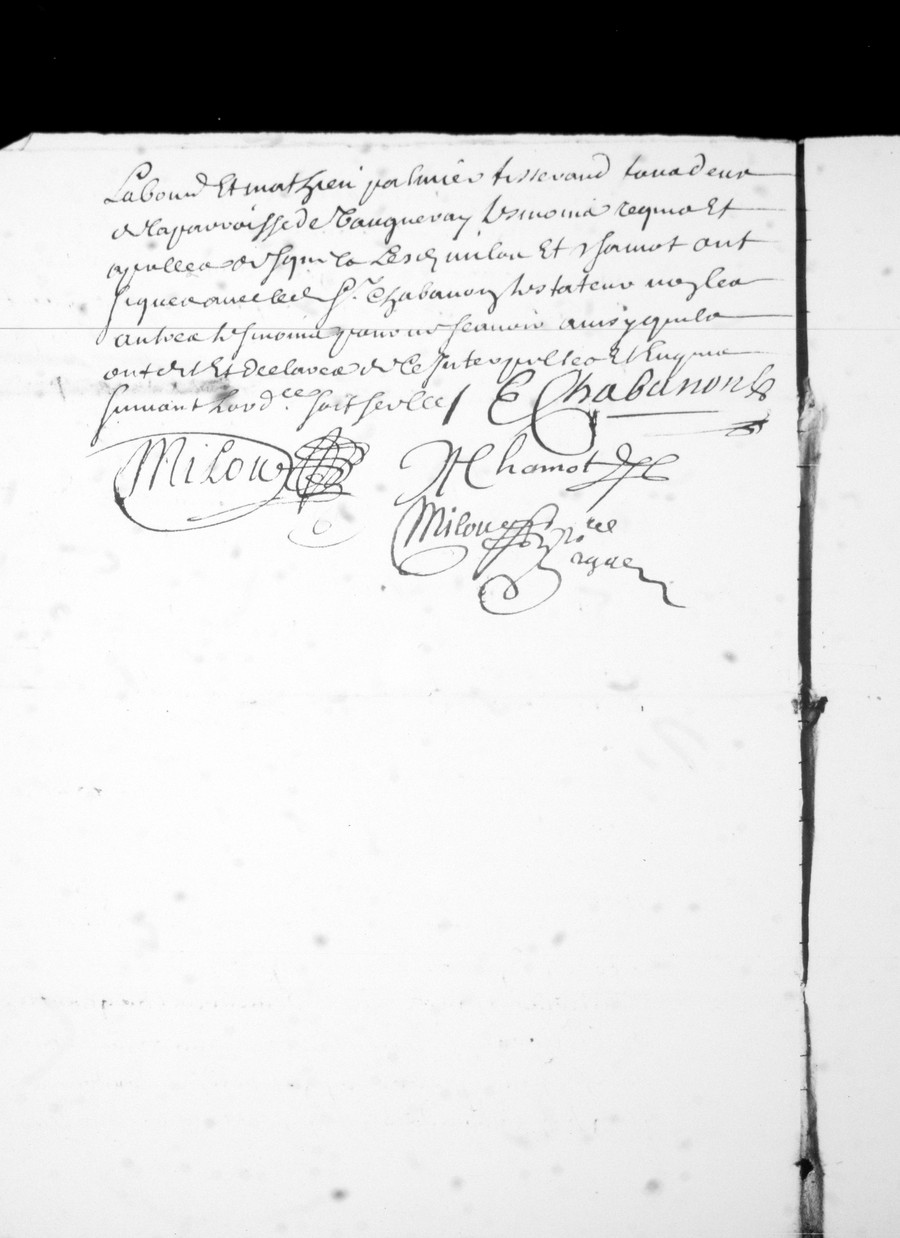 Laboure Et mathieu palmier tisserand tous deux
de la parroisse de Vaugneray tesmoins requis Et
apelles desquels Lesd milou Et chamot ont
signes avec led Sr. Chabanon testateur no les
autres tesmoins pour ne scavoir ainsy quils
ont dit Et declares de ce Interpelles Et Enquis
suivant Lordce soit scellé /
E Chabanon
Milou
Chamot
Milou Nore